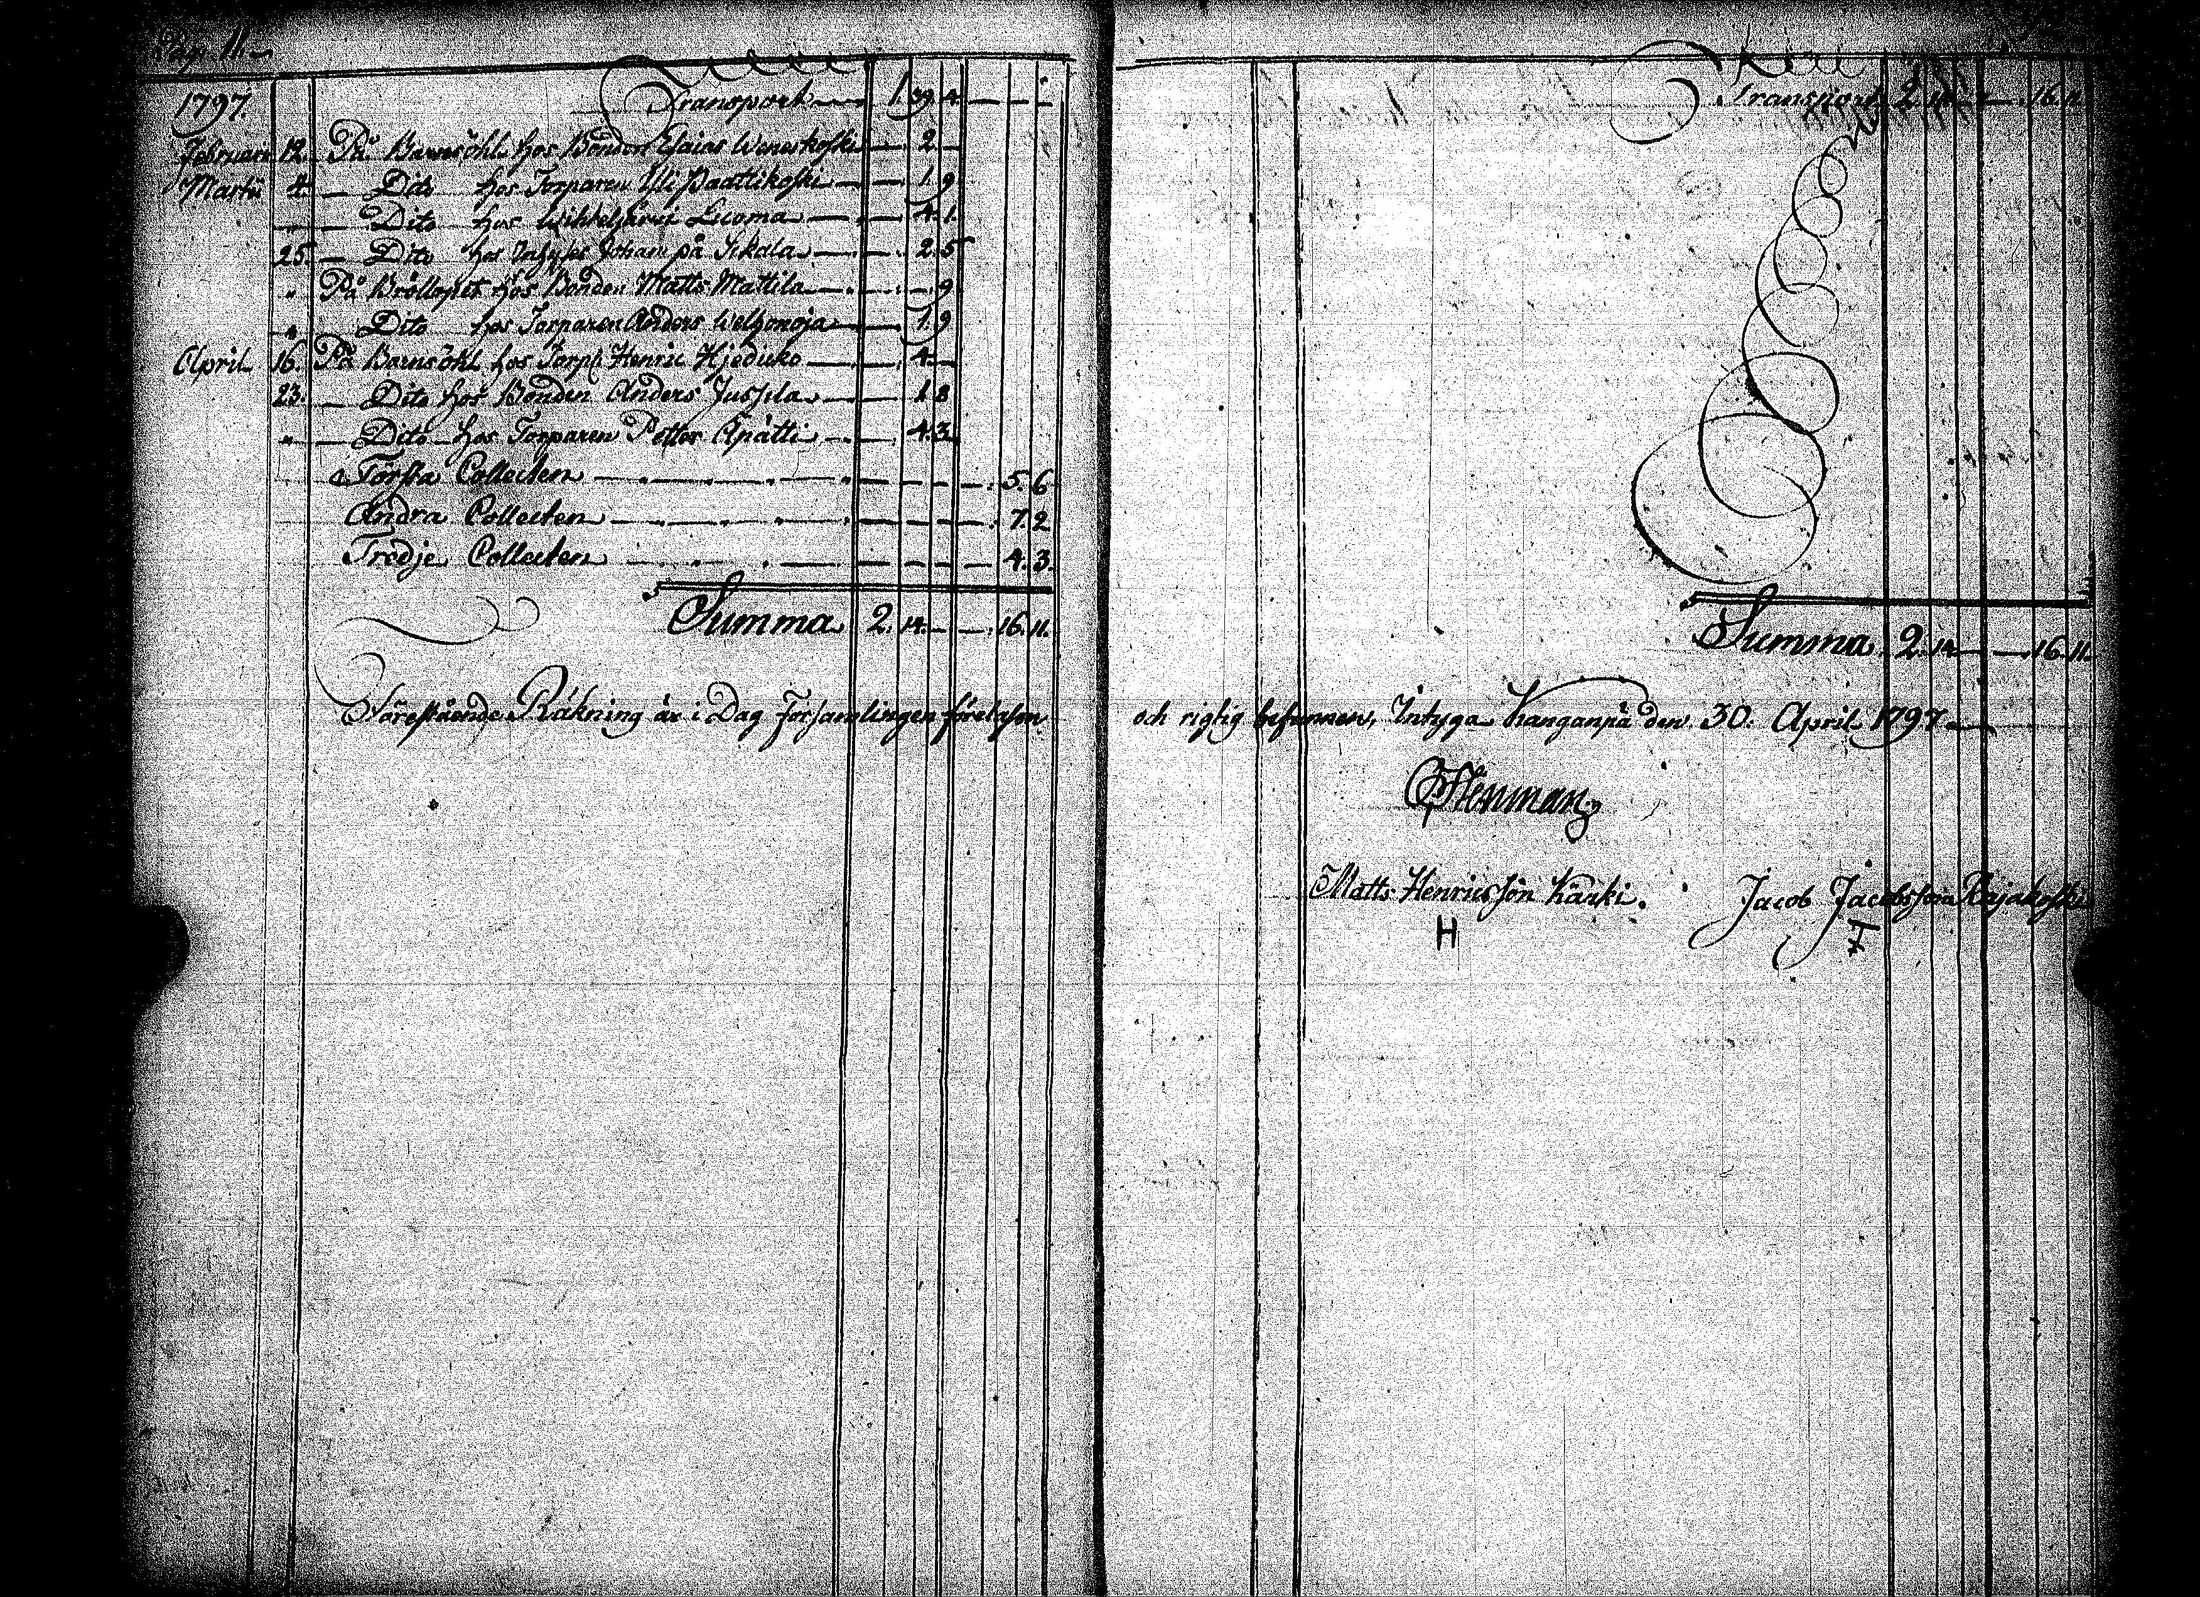 Pag. 11.
Transport 1. 39. 4. — — —
1797.
Februari 12. På Barnsöhl hos Bonden Esaias Weneskoski — 2 —
Martii 4. — Dito hos Torparen Yli Paattikoski — 1. 9
— Dito hos Luoma — 4. 1.
25. — Dito hos Inhyses Johan på Sikala — 2. 5
" På Bröllopet hos Bonden Matts Mattila — — 9
" Dito hos Torparen Anders Welhonoja — 1. 9
April 16. På Barnsöhl hos Torp. Henric Hjeducko — 4 —
23. — Dito hos Bonden Anders Jussila — 1 8
" — Dito hos Torparen Petter Kpätti — 4. 3.
Första Collecten — 5. 6
Andra Collecten — 7. 2
Tredje Collecten — 4. 3.
Summa 2. 14. — — 16. 11.
Förestående Räkning är i Dag Församlingen föreläsen
Transport 2. 14 — — 16. 11
Summa 2. 14 — — 16. 11
och rigtig befunnen, Intyga Kanganpä den 30. April 1797.
Stenman
Matts Henricsson Kärki. Jacob Jacobsson Rajakoski
H